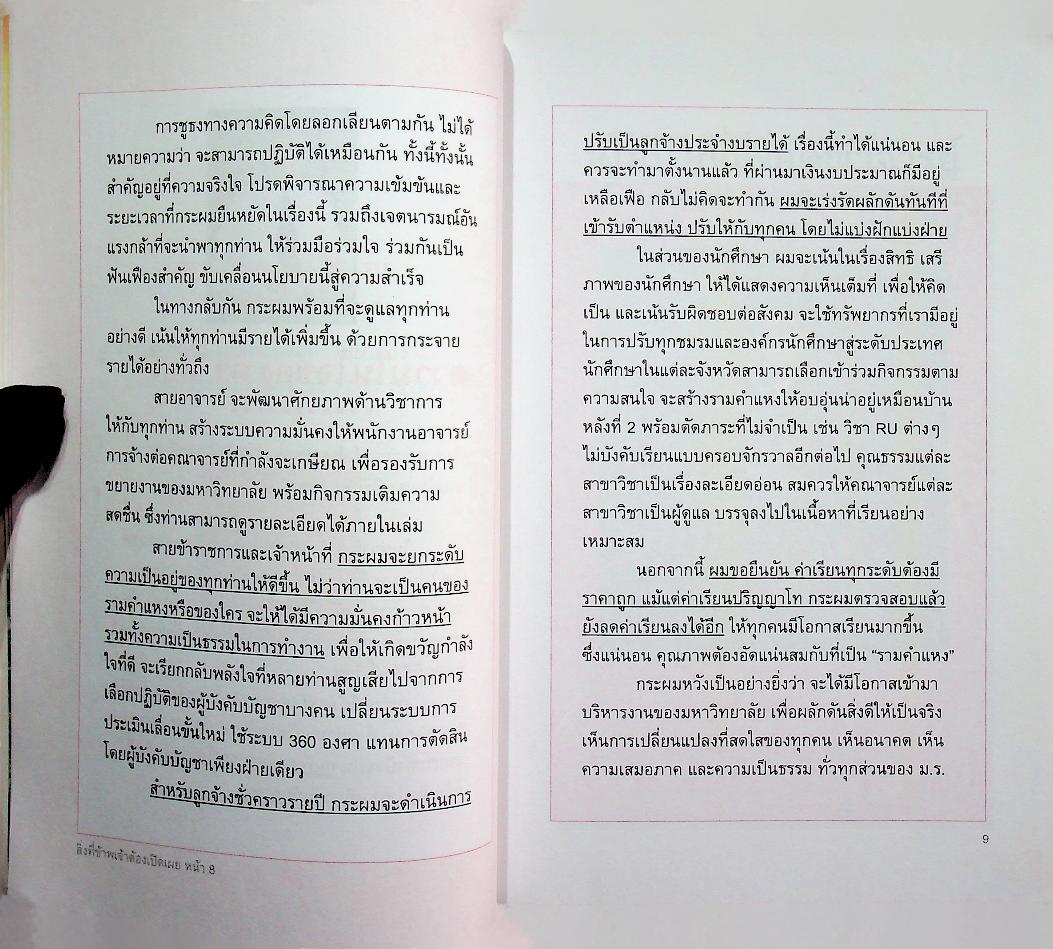 การชูธงทางความคิดโดยลอกเลียนตามกัน ไม่ได้
หมายความว่า จะสามารถปฏิบัติได้เหมือนกัน ทั้งนี้ทั้งนั้น
สำคัญอยู่ที่ความจริงใจ โปรดพิจารณาความเข้มข้นและ
ระยะเวลาที่กระผมยืนหยัดในเรื่องนี้ รวมถึงเจตนารมณ์อัน
แรงกล้าที่จะนำพาทุกท่าน ให้ร่วมมือร่วมใจ ร่วมกันเป็น
ฟันเฟืองสำคัญ ขับเคลื่อนนโยบายนี้สู่ความสำเร็จ
ในทางกลับกัน กระผมพร้อมที่จะดูแลทุกท่าน
อย่างดี เน้นให้ทุกท่านมีรายได้เพิ่มขึ้น ด้วยการกระจาย
รายได้อย่างทั่วถึง
สายอาจารย์ จะพัฒนาศักยภาพด้านวิชาการ
ให้กับทุกท่าน สร้างระบบความมั่นคงให้พนักงานอาจารย์
การจ้างต่อคณาจารย์ที่กำลังจะเกษียณ เพื่อรองรับการ
ขยายงานของมหาวิทยาลัย พร้อมกิจกรรมเติมความ
สดชื่น ซึ่งท่านสามารถดูรายละเอียดได้ภายในเล่ม
สายข้าราชการและเจ้าหน้าที่ กระผมจะยกระดับ
ความเป็นอยู่ของทุกท่านให้ดีขึ้น ไม่ว่าท่านจะเป็นคนของ
รามคำแหงหรือของใคร จะให้ได้มีความมั่นคงก้าวหน้า
รวมทั้งความเป็นธรรมในการทำงาน เพื่อให้เกิดขวัญกำลัง
ใจที่ดี จะเรียกกลับพลังใจที่หลายท่านสูญเสียไปจากการ
เลือกปฏิบัติของผู้บังคับบัญชาบางคน เปลี่ยนระบบการ
ประเมินเลื่อนขั้นใหม่ ใช้ระบบ 360 องศา แทนการตัดสิน
โดยผู้บังคับบัญชาเพียงฝ่ายเดียว
สำหรับลูกจ้างชั่วคราวรายปี กระผมจะดำเนินการ
สิ่งที่ข้าพเจ้าต้องเปิดเผย หน้า 8
ปรับเป็นลูกจ้างประจำงบรายได้ เรื่องนี้ทำได้แน่นอน และ
ควรจะทำมาตั้งนานแล้ว ที่ผ่านมาเงินงบประมาณก็มีอยู่
เหลือเฟือ กลับไม่คิดจะทำกัน ผมจะเร่งรัดผลักดันทันทีที่
เข้ารับตำแหน่ง ปรับให้กับทุกคน โดยไม่แบ่งฝักแบ่งฝ่าย
ในส่วนของนักศึกษา ผมจะเน้นในเรื่องสิทธิ เสรี
ภาพของนักศึกษา ให้ได้แสดงความเห็นเต็มที่ เพื่อให้คิด
เป็น และเน้นรับผิดชอบต่อสังคม จะใช้ทรัพยากรที่เรามีอยู่
ในการปรับทุกชมรมและองค์กรนักศึกษาสู่ระดับประเทศ
นักศึกษาในแต่ละจังหวัดสามารถเลือกเข้าร่วมกิจกรรมตาม
ความสนใจ จะสร้างรามคำแหงให้อบอุ่นน่าอยู่เหมือนบ้าน
หลังที่ 2 พร้อมตัดภาระที่ไม่จำเป็น เช่น วิชา RU ต่างๆ
ไม่บังคับเรียนแบบครอบจักรวาลอีกต่อไป คุณธรรมแต่ละ
สาขาวิชาเป็นเรื่องละเอียดอ่อน สมควรให้คณาจารย์แต่ละ
สาขาวิชาเป็นผู้ดูแล บรรจุลงไปในเนื้อหาที่เรียนอย่าง
เหมาะสม
นอกจากนี้ ผมขอยืนยัน ค่าเรียนทุกระดับต้องมี
ราคาถูก แม้แต่ค่าเรียนปริญญาโท กระผมตรวจสอบแล้ว
ยังลดค่าเรียนลงได้อีก ให้ทุกคนมีโอกาสเรียนมากขึ้น
ซึ่งแน่นอน คุณภาพต้องอัดแน่นสมกับที่เป็น “รามคำแหง”
กระผมหวังเป็นอย่างยิ่งว่า จะได้มีโอกาสเข้ามา
บริหารงานของมหาวิทยาลัย เพื่อผลักดันสิ่งดีให้เป็นจริง
เห็นการเปลี่ยนแปลงที่สดใสของทุกคน เห็นอนาคต เห็น
ความเสมอภาค และความเป็นธรรม ทั่วทุกส่วนของ ม.ร.
9